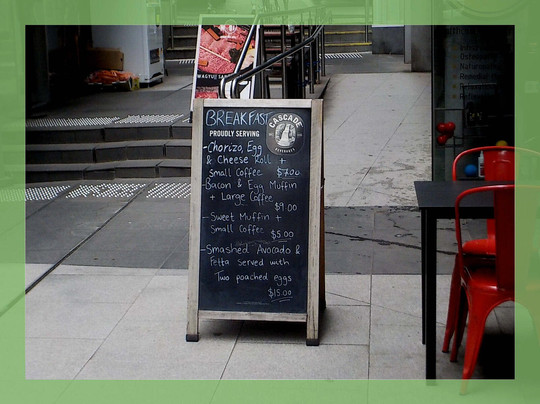 WAGYU
BREAKFAST
PROUDLY SERVING
CASCADE
BEVERAGES
-Chorizo, Egg
& Cheese Roll +
Small Coffee $7.00
-Bacon & Egg Muffin
+ Large Coffee
$9.00
-Sweet Muffin +
Small Coffee
$5.00
-Smashed Avocado &
Fetta served with
Two poached eggs
$15.00